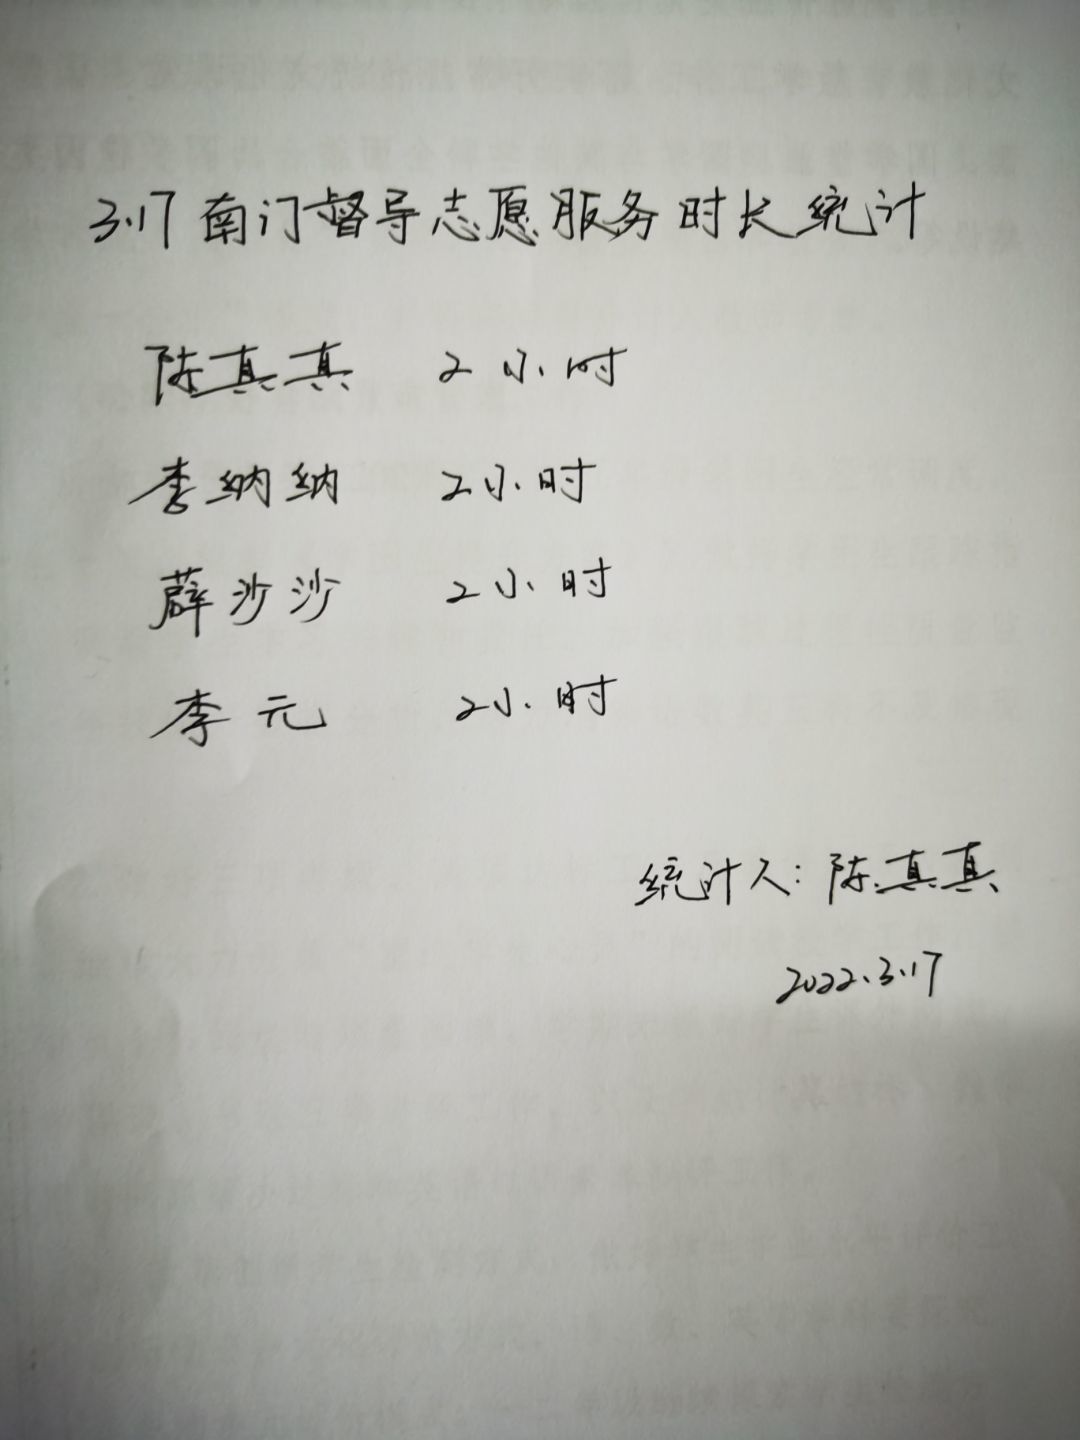 3.17南门督导志愿服务时长统计
陈真真 2小时
李纳纳 2小时
薛沙沙 2小时
李元 2小时
统计人：陈真真
2022.3.17